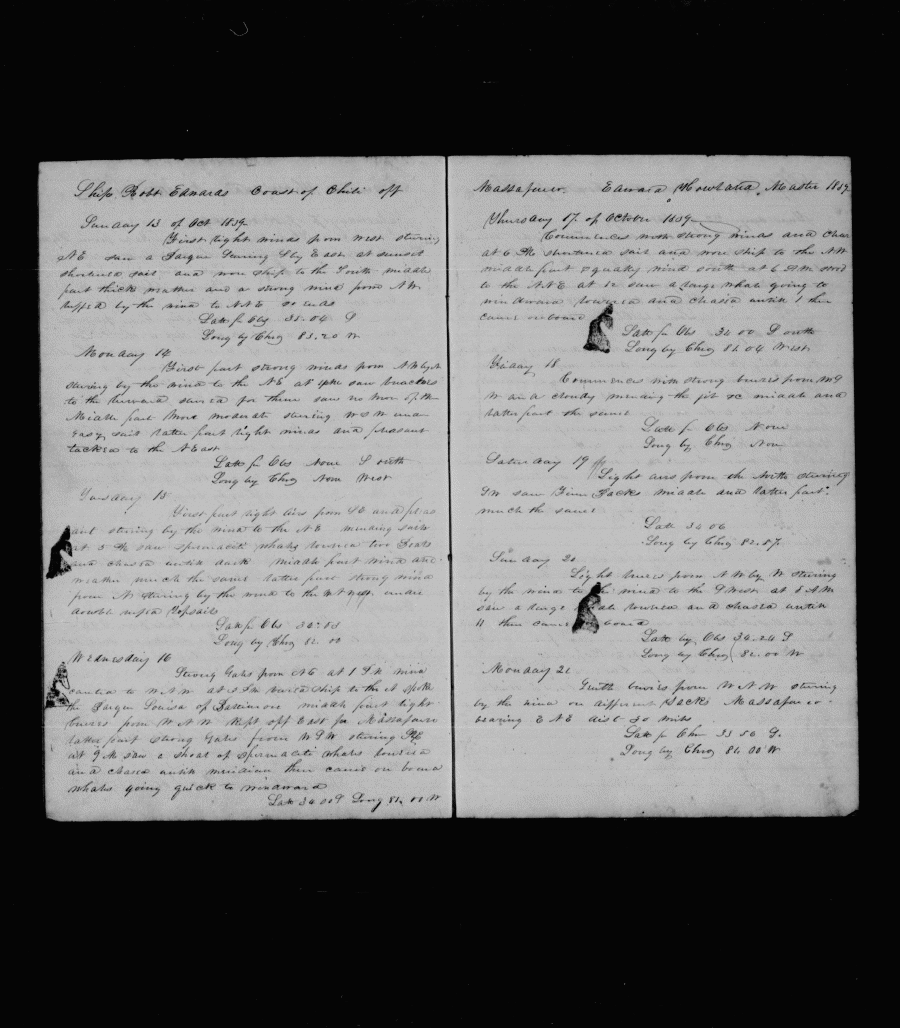 Ship Robt Edwards Coast of Chili off
Sunday 13 of Oct 1839
First light winds from west stering
NE saw a Barque stering S by East at sunset
shortened sail and wore ship to the South middle
part thick weather and a strong wind from NW
by the wind to NNE
Latt by Obs 35.04 S
Long by Chro 83.20 W
Monday 14
First part strong winds from NW by N
stering by the wind to the NE at saw breachers
to the leward steered for them saw no more of them
Middle part More moderate stering WSW under
easy sail latter part light winds and pleasant
tacked to the N East
Latt by Obs None South
Long by Chro None West
Tuesday 15
First part light airs from SE and pleas
ant stering by the wind to the NE mending sails
at 3 PM saw spermaciti whales lowered two Boats
and chased untill dark middle part wind and
weather much the same latter part strong wind
from N stering by the wind to the under
double reefed Topsails
Latt by Obs
Long by Chro 82.00
Wednesday 16
Strong Gales from NE at 1 PM wind
canted to WNW at 3 PM wore ship to the spoke
the Barque Louisa of Baltimore middle part light
breeses from WNW kept off East for Massafuero
latter part strong Gales from WSW stering
at 9 AM saw a shoal of spermaciti whales lowered
and chased untill meridian then came on board
whales going quick to windward
Latt 34.00 S Long 82.00 W
Massafuero. Edward Howland, Master 1839
Thursday 17 of October 1839
Commences with strong winds and clear
at 6 PM shortened sail and wore ship to the NW
middle part squally wind south at 6 AM stood
to the NNE at 12 saw a large whale going to
windward lowered and chased untill 1 then
came onboard
Latt by Obs 34 00 South
Long by Chro 82.04 West
Friday 18
Commences with strong breeses from
W and cloudy mending the jib &c middle and
latter part the same
Latt by Obs None
Long by Chro None
Saturday 19
Light airs from the North stering
SW saw Finn Backs middle and latter part
much the same
Latt 34 06
Long by Chro 82.57
Sunday 20
Light breeses from NW by W stering
by the wind to the wind to the S West at 8 AM
saw a large whale lowered and chased untill
11 then came on board
Latt by Obs 34.24 S
Long by Chro 82.00 W
Monday 21
Gentle breeses from WNW stering
by the wind on different Tacks Massafuero
bearing ENE dist 30 miles
Latt by Chro 33 56 S.
Long by Chro 81 00 W